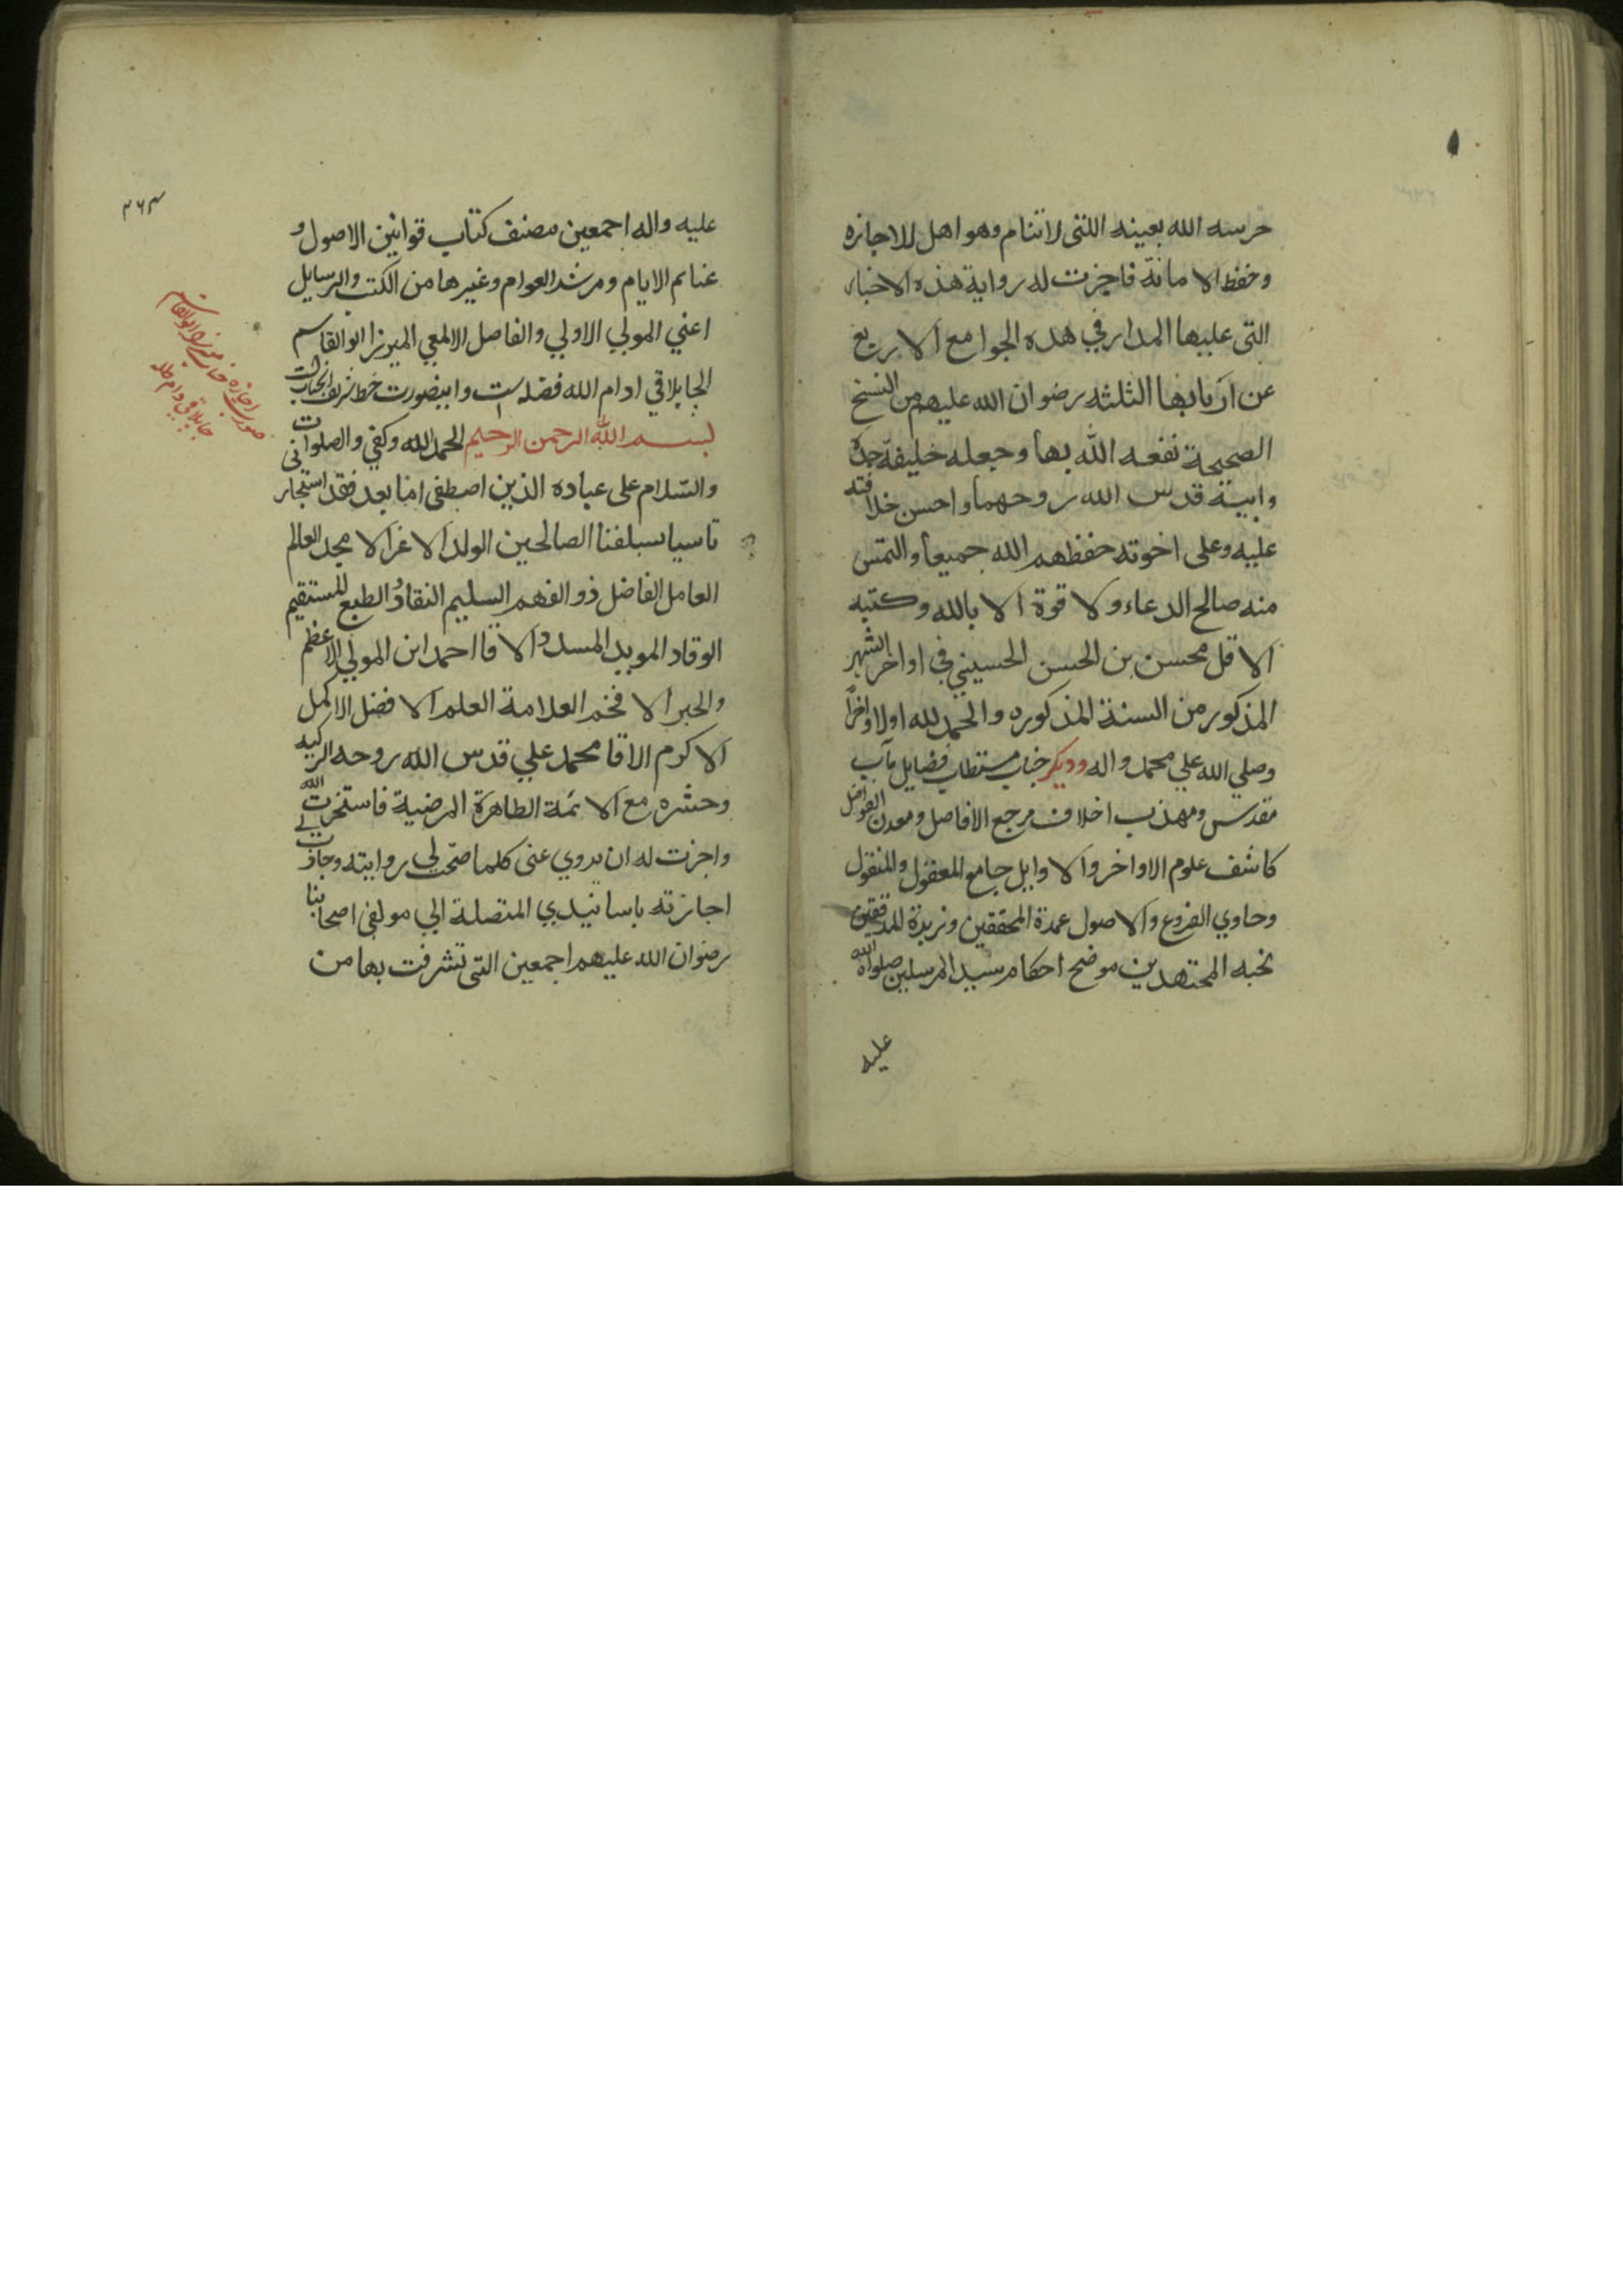 حرسه الله بعينه اللتی لا تنام وهو اهل للاجازه
وحفظ الامانة فاجزت له رواية هذه الاخبار
التی عليها المدار في هذه الجوامع الاربع
عن اربابها الثلثه رضوان الله عليهم من النسخ
الصحيحة نفعه الله بها وجعله خليفة جده
وابيه قدس الله روحهما واحسن خلافته
عليه وعلى اخوته حفظهم الله جميعا والتمس
منه صالح الدعاء ولا قوة الا بالله وكتبه
الاقل محسن بن الحسن الحسيني في اواخر الشهر
المذكور من السنة المذكوره والحمد لله اولا واخراً
وصلي الله علي محمد واله وديكر جناب مستطاب فضايل مآب
مقدس ومهذب اخلاق مرجع الافاضل ومعدن الفواضل
كاشف علوم الاواخر والاوايل جامع المعقول والمنقول
وحاوي الفروع والاصول عمدة المحققين وزبدة المدققين
نخبه المجتهدين موضح احكام سيد المرسلين صلواة الله
عليه
۳۶۳
عليه واله اجمعين مصنف كتاب قوانين الاصول و
غنايم الايام ومرشد العوام وغيرها من الكتب والرسايل
اعني المولي الاولي والفاضل الالمعي الميرزا ابو القاسم
الجابلاقي ادام الله فضله است واينصورت خط شريف انجنابست
بسم الله الرحمن الرحيم الحمد لله وكفي والصلوات
والسّلام على عباده الذين اصطفی اما بعد فقد استجازنی
تاسيا بسلفنا الصالحين الولد الاغر الامجد العالم
العامل الفاضل ذو الفهم السليم النقاد والطبع المستقيم
الوقاد المويد المسدد الاقا احمد ابن المولي الاعظم
والحبر الافخم العلامة العلم الافضل الاكمل
الاكرم الاقا محمد علي قدس الله روحه الزكيه
وحشره مع الائمة الطاهرة المرضية فاستخرت الله
واجزت له ان يروي عنی كلما صحّت لي روايته وجازت لي
اجازته باسانيدي المتصلة الي مولفی اصحابنا
رضوان الله عليهم اجمعين التی تشرفت بها من
صورت اجازه جناب ميرزا ابو القاسم
جابلاقی دام ظله